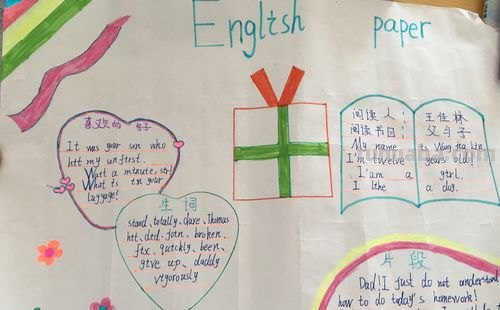 English paper
喜欢的句子
It was your son who
hit my son first.
Wait a minute, sir!
What is in your
luggage?
生词
stand、totally、dare、Thomas
hit、did、join、broken、
fix、quickly、been、
give up、daddy
vigorously
阅读人：王佳林
阅读书目：父与子
My name is Wang Jia Lin.
I'm twelve years old.
I'am a girl.
I like a dog.
片段
Dad! I just do not understand
how to do today's homework!